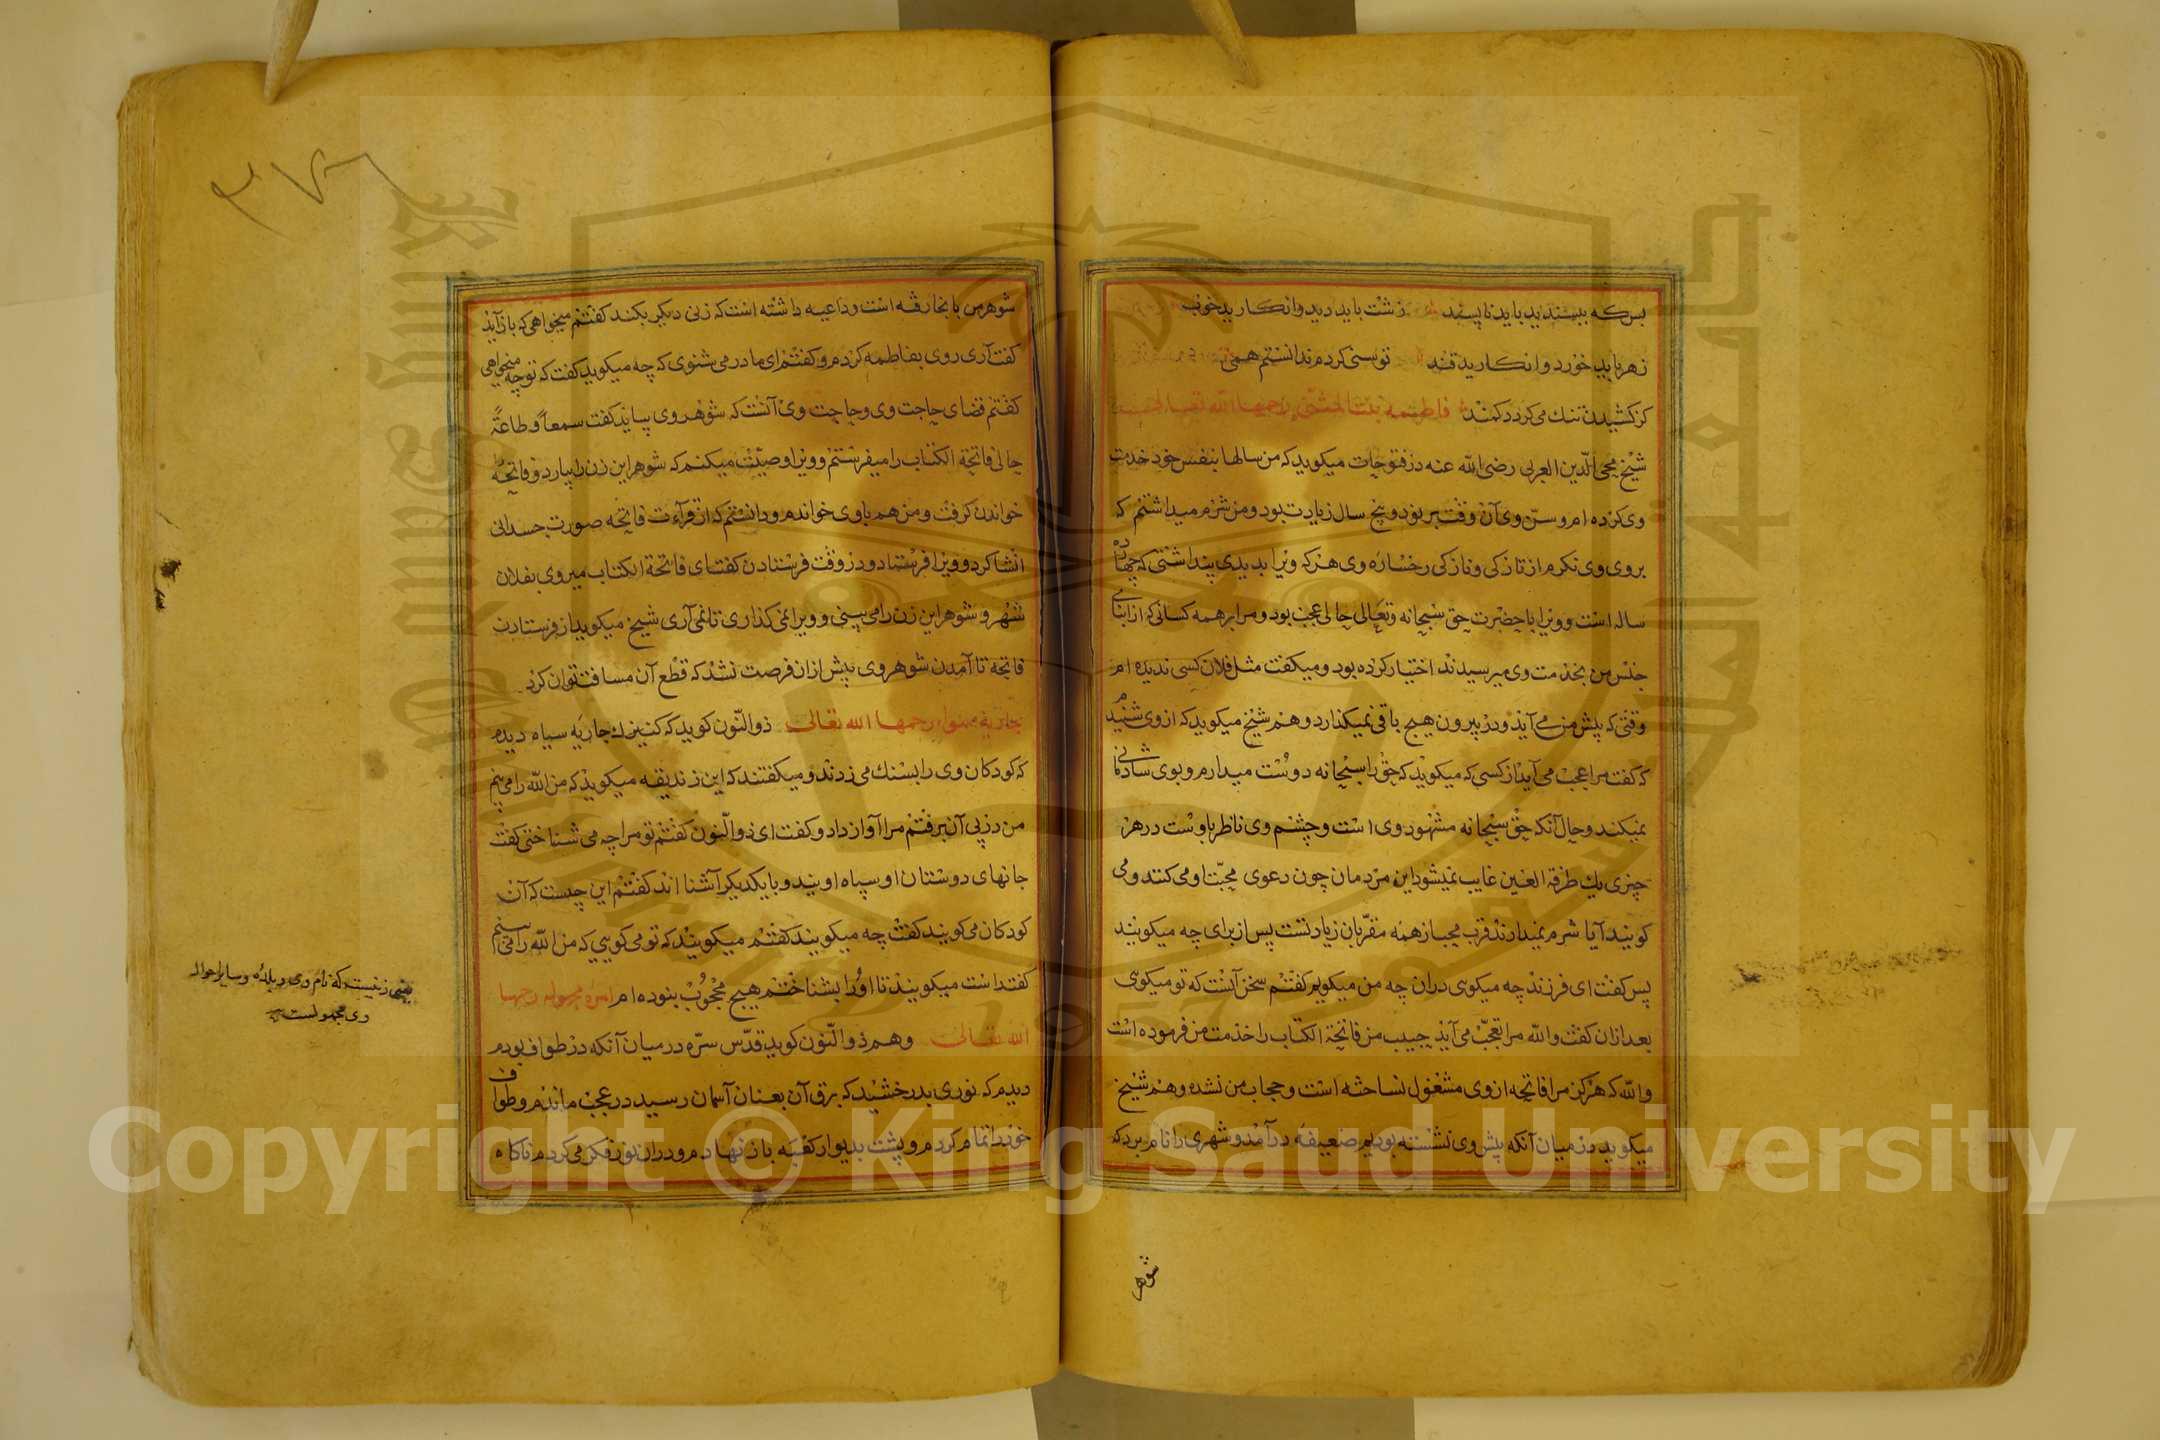 بس که ببسندید باید ناپسند زشت باید دید وانکارید خوب
زهر باید خورد وانکارید قند توسنی کردم ندانستم همی
کز کشیدن تنك می کردد کمند فاطمه بنت المثنی رحمها الله تعالی
شیخ محیی الدین العربی رضی الله عنه در فتوحات میکوید که من سالها بنفس خود خدمت
وی کرده ام وسن وی آن وقت بر نود و پنج سال زیادت بود ومن شرم میداشتم که
بروی وی نکرم از تازکی ونازکی رخساره وی هرکه ویرا بدیدی پنداشتی که چهارده
ساله است وویرا با حضرت حق سبحانه وتعالی حالی عجب بود ومرا بر همه کسانی که از ابنای
جنس من بخدمت وی میرسیدند اختیار کرده بود ومیکفت مثل فلان کسی ندیده ام
وقتی که پیش من می آید ودر بیرون هیچ باقی نمیکذارد وهم شیخ میکوید که از وی شنیدم
که کفت مرا عجب می آید از کسی که میکوید که حق را سبحانه دوست میدارم وبوی شادی
نمیکند وحال آنکه حق سبحانه مشهود وی است وچشم وی ناظر باوست در هر
چیزی یك طرفة العین غایب نمیشود این مردمان چون دعوی محبت او می کنند ومی
کویند آیا شرم نمیدارند قرب محب از همه مقربان زیادتست پس از برای چه میکویند
پس کفت ای فرزند چه میکوی در آن چه من میکویم کفتم سخن آنست که تو میکوی
بعد ازان کفت والله مرا تعجب می آید حبیب من فاتحة الکتاب را خدمت من فرموده است
والله که هرکز مرا فاتحه از وی مشغول نساخته است وحجاب من نشده وهم شیخ
میکوید در میان آنکه پیش وی نشسته بودیم ضعیفه در آمد وشهری را نام برد که
شوهر
٣٧
شوهر من بانجا رفته است وداعیه داشته است که زنی دیکر بکند کفتم میخواهی که باز آید
کفت آری روی بفاطمه کردم وکفتم ای مادر می شنوی که چه میکوید کفت که تو چه میخواهی
کفتم قضای حاجت وی وحاجت وی آنست که شوهر وی بیاید کفت سمعاً وطاعةً
حالی فاتحة الکتاب را میفرستم وویرا وصیت میکنم که شوهر این زن را بیارد وفاتحه
خواندن کرفت ومن هم باوی خواندم ودانستم که از قرآءت فاتحه صورت جسدانی
انشا کرد وویرا فرستاد ودر وقت فرستادن کفت ای فاتحة الکتاب میروی بفلان
شهر وشوهر این زن را می بینی وویرا نمی کذاری تا نمی آری شیخ میکوید از فرستادن
فاتحه تا آمدن شوهر وی بیش ازان فرصت نشد که قطع آن مسافت توان کرد
جاریه سودا رحمها الله تعالی ذوالنون کوید که کنیزك جاریه سیاه دیدم
که کودکان وی را بسنك می زدند ومیکفتند که این زندیقه میکوید که من الله را می بینم
من در پی آن برفتم مرا آواز داد وکفت ای ذوالنون کفتم تو مرا چه می شناختی کفت
جانهای دوستان او سپاه اویند وبا یکدیکر آشنا اند کفتم این چیست که آن
کودکان می کویند کفت چه میکویند کفتم میکویند که تو می کویی که من الله را می بینم
کفت راست میکویند تا او را بشناختم هیچ محجوب نبوده ام امرأه مجهوله رحمها
الله تعالی وهم ذوالنون کوید قدس سره در میان آنکه در طواف بودم
دیدم که نوری بدرخشید که برق آن بعنان آسمان رسید در عجب ماندم وطواف
خود را تمام کردم وپشت بدیوار کعبه باز نهادم ودران نور فکر می کردم ناکاه
یعنی زنیست که نام وی وبلده وسایر احوال
وی مجهولست
Copyright © King Saud University